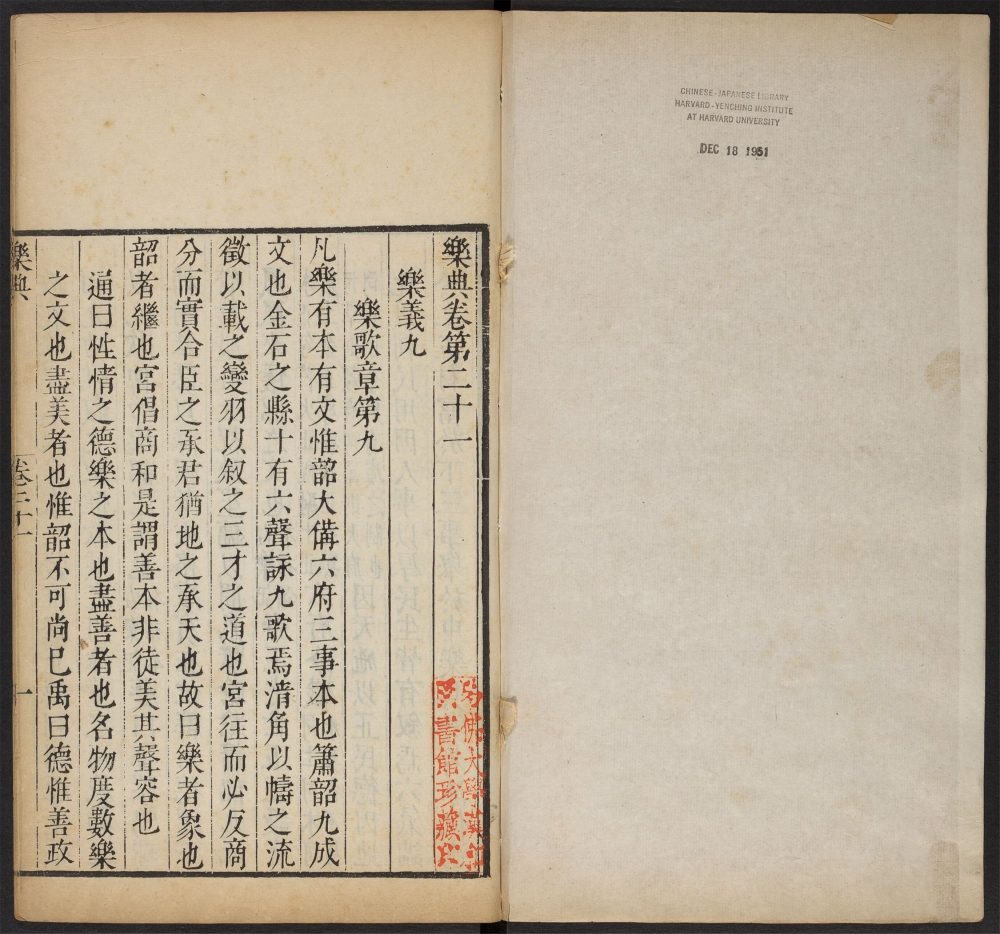 CHINESE-JAPANESE LIBRARY
HARVARD-YENCHING INSTITUTE
AT HARVARD UNIVERSITY
DEC 18 1951
樂典卷第二十一
樂義九
樂歌章第九
凡樂有本有文惟韶大備六府三事本也簫韶九成
文也金石之縣十有六聲詠九歌焉清角以幬之流
徵以載之變羽以叙之三才之道也宮往而必反商
分而實合臣之承君猶地之承天也故曰樂者象也
韶者繼也宮倡商和是謂善本非徒美其聲容也
通曰性情之德樂之本也盡善者也名物度數樂
之文也盡美者也惟韶不可尚已禹曰德惟善政
樂典
卷二十一
一
佛大學漢
書館珍藏